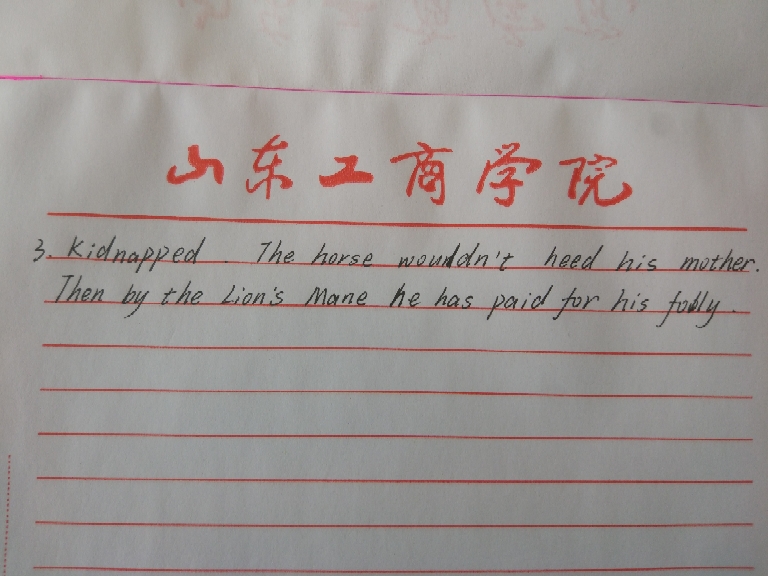 山东工商学院
3. Kidnapped. The horse wouldn't heed his mother.
Then by the Lion's Mane he has paid for his folly.